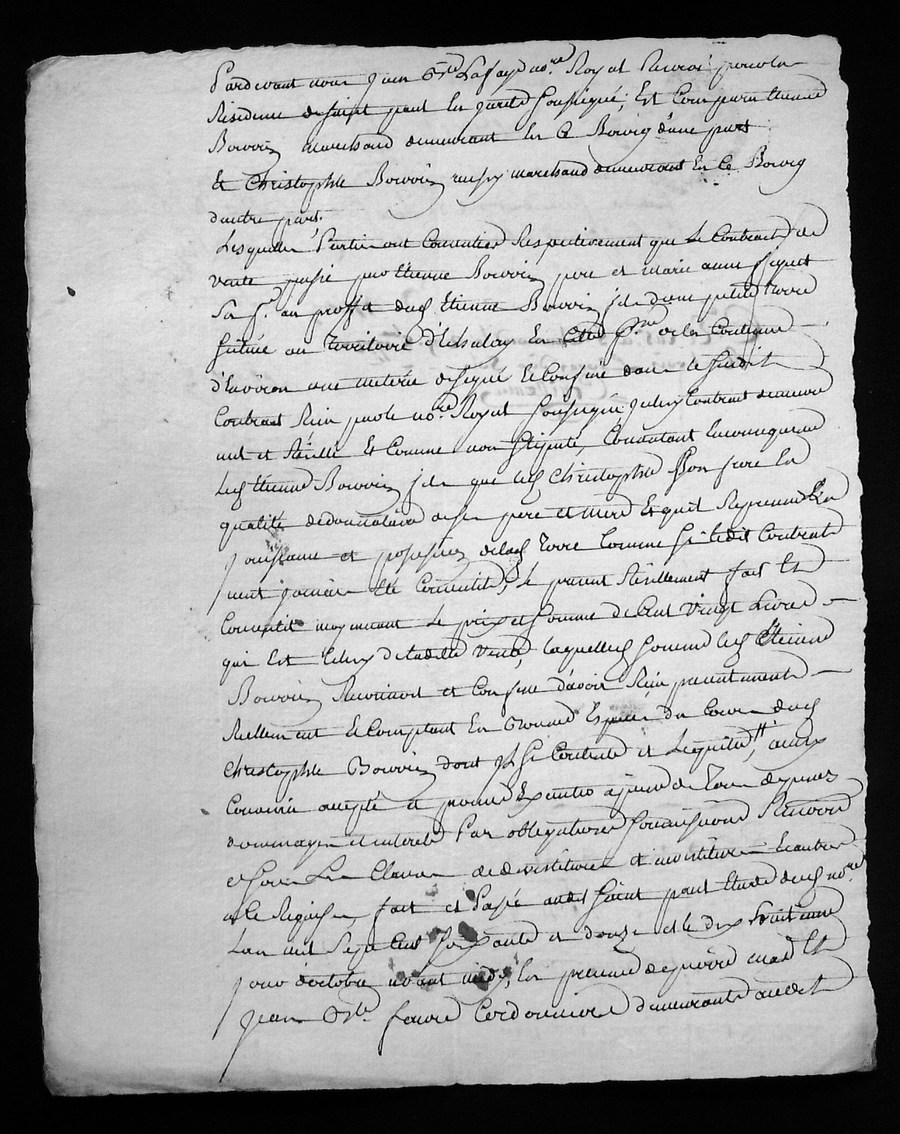 Pardevant nous Jean Bte Lafay nore Royal Reservé pour la
Residence de Saint paul en Jarêts Soussigné, Est Comparu Etienne
Bouvier marchand demeurant En Ce Bourg d'une part
Et Christophle Bouvier aussy marchand demeurant En Ce Bourg
dautre part.
Lesquelles Parties ont Consenties Respectivement que Le Contract de
vente passé par Etienne Bouvier pere et marie anne
Sa fe au proffit dud Etienne Bouvier fils d'une petite terre
Scituée au Territoire d'Echalay En Cette de la Contenue
d'Environ une meterée de Segle et Confiné dans le Susdit
Contract Reçu par le nore Royal Soussigné, Contract demeure
nul et Resillié Et Comme non Stipulé, Consentant En Consequence
Led Etienne Bouvier fils que led Christophle Son frere En
qualité de donnataire de Ses pere et mere Et quil Reprenne La
jouissance et possession de lad Terre Comme Si ledit Contract
neut jamais Eté Consentit, Le present Resillement fait Et
Consentit moyennant Le prix et Somme de Cent Vingt Livres
qui Est Celuy de ladite Vente, laquelle Somme led Etienne
Bouvier Reconnoit et Confesse d'avoir Reçu presentement
Réellement et Comptant En Bonnes Espèces du Cours dud
Christophle Bouvier dont Il Se Contente et Lequitte, ainsy
Convenu accepté et promis Executer à peine de Tous depens
dommages et interets Par obligations Soumissions Renonces
et Sous Les Clauses de devestitures et investitures Et autres
a Ce Requises fait et Passé audit Saint paul Etude dud nore
Lan mil Sept Cent Soixante et douze et le dix huitieme
jour doctobre avant midy, En presence de pierre mas Et
Jean Bte faure Cordonniers demeurants audit